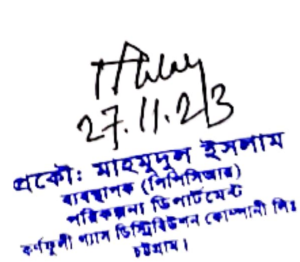 27.11.23
প্রকৌঃ মাহমুদুল ইসলাম
ব্যবস্থাপক (পিপিসিআর)
পরিকল্পনা ডিপার্টমেন্ট
কর্ণফুলী গ্যাস ডিস্ট্রিবিউশন কোম্পানী লিঃ
চট্টগ্রাম।